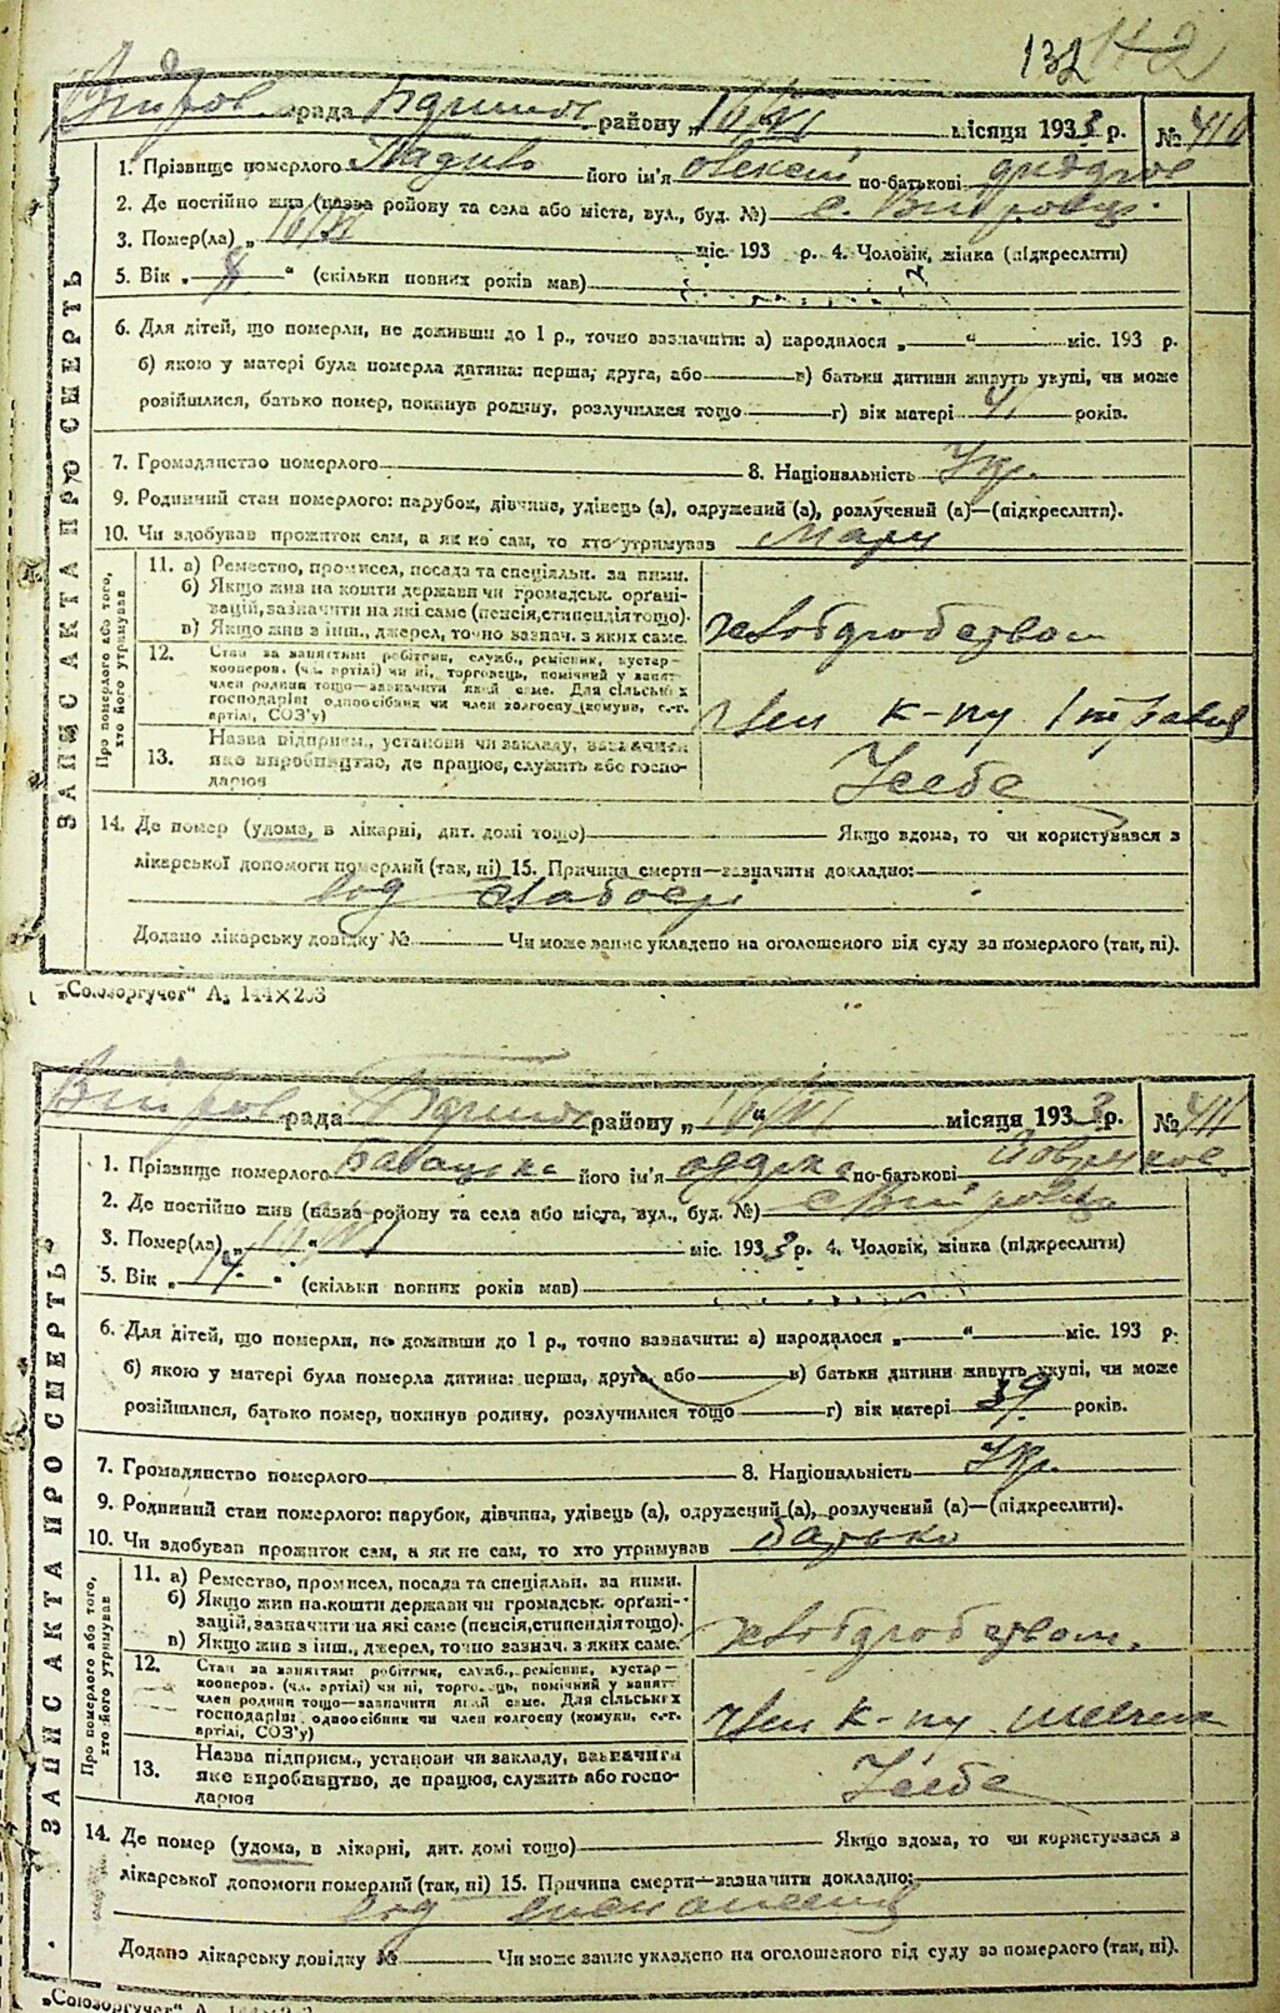 132 142
рада району „16/VI місяця 1933 р. № 410
1. Прізвище померлого його ім'я Олексій по-батькові
2. Де постійно жив (назва району та села або міста, вул., буд. №) с.
3. Помер(ла) „16/VI міс. 193 р. 4. Чоловік, жінка (підкреслити)
5. Вік „ 8 “ (скільки повних років мав)
6. Для дітей, що померли, не доживши до 1 р., точно зазначити: а) народилося „ “ міс. 193 р.
б) якою у матері була померла дитина: перша, друга, або в) батьки дитини живуть укупі, чи може
розійшлися, батько помер, покинув родину, розлучилися тощо г) вік матері 41 років.
7. Громадянство померлого 8. Національність Укр.
9. Родинний стан померлого: парубок, дівчина, удівець (а), одружений (а), розлучений (а)—(підкреслити).
10. Чи здобував прожиток сам, а як не сам, то хто утримував
ЗАПИС АКТА ПРО СМЕРТЬ
Про померлого або того, хто його утримував
11. а) Ремество, промисел, посада та спеціяльн. за ними.
б) Якщо жив на кошти держави чи громадськ. орґані-
зацій, зазначити на які саме (пенсія, стипендія тощо).
в) Якщо жив з інш., джерел, точно зазнач. з яких саме.
хлібдробством
12. Стан за заняттям: робітник, служб., ремісник, кустар—
кооперов. (чл. артілі) чи ні, торговець, помічний у занят.
член родини тощо—зазначити який саме. Для сільських
господарів: одноосібник чи член колгоспу (комуни, с.-г.
артілі, СОЗ'у)
член к-пу 1
13. Назва підприєм., установи чи закладу, зазначити
яке виробництво, де працює, служить або госпо-
дарює
У себе
14. Де помер (удома, в лікарні, дит. домі тощо) Якщо вдома, то чи користувався з
лікарської допомоги померлий (так, ні) 15. Причина смерти—зазначити докладно:
од слабості
Додано лікарську довідку № Чи може запис укладено на оголошеного від суду за померлого (так, ні).
„Союзоргучет“ А₅ 144×203
рада району „16/VI“ місяця 1933 р. № 411
1. Прізвище померлого його ім'я по-батькові
2. Де постійно жив (назва району та села або міста, вул., буд. №) с
3. Помер(ла) „ “ міс. 1933 р. 4. Чоловік, жінка (підкреслити)
5. Вік „ 14 “ (скільки повних років мав)
6. Для дітей, що померли, не доживши до 1 р., точно зазначити: а) народилося „ “ міс. 193 р.
б) якою у матері була померла дитина: перша, друга, або в) батьки дитини живуть укупі, чи може
розійшлися, батько помер, покинув родину, розлучилися тощо г) вік матері 39 років.
7. Громадянство померлого 8. Національність Укр.
9. Родинний стан померлого: парубок, дівчина, удівець (а), одружений (а), розлучений (а)—(підкреслити).
10. Чи здобував прожиток сам, а як не сам, то хто утримував батько
ЗАПИС АКТА ПРО СМЕРТЬ
Про померлого або того, хто його утримував
11. а) Ремество, промисел, посада та спеціяльн. за ними.
б) Якщо жив на кошти держави чи громадськ. орґані-
зацій, зазначити на які саме (пенсія, стипендія тощо).
в) Якщо жив з інш., джерел, точно зазнач. з яких саме.
хлібдробством.
12. Стан за заняттям: робітник, служб., ремісник, кустар—
кооперов. (чл. артілі) чи ні, торговець, помічний у занят.
член родини тощо—зазначити який саме. Для сільських
господарів: одноосібник чи член колгоспу (комуни, с.-г.
артілі, СОЗ'у)
член к-пу
13. Назва підприєм., установи чи закладу, зазначити
яке виробництво, де працює, служить або госпо-
дарює
У себе
14. Де помер (удома, в лікарні, дит. домі тощо) Якщо вдома, то чи користувався з
лікарської допомоги померлий (так, ні) 15. Причина смерти—зазначити докладно:
од
Додано лікарську довідку № Чи може запис укладено на оголошеного від суду за померлого (так, ні).
„Союзоргучет“ А